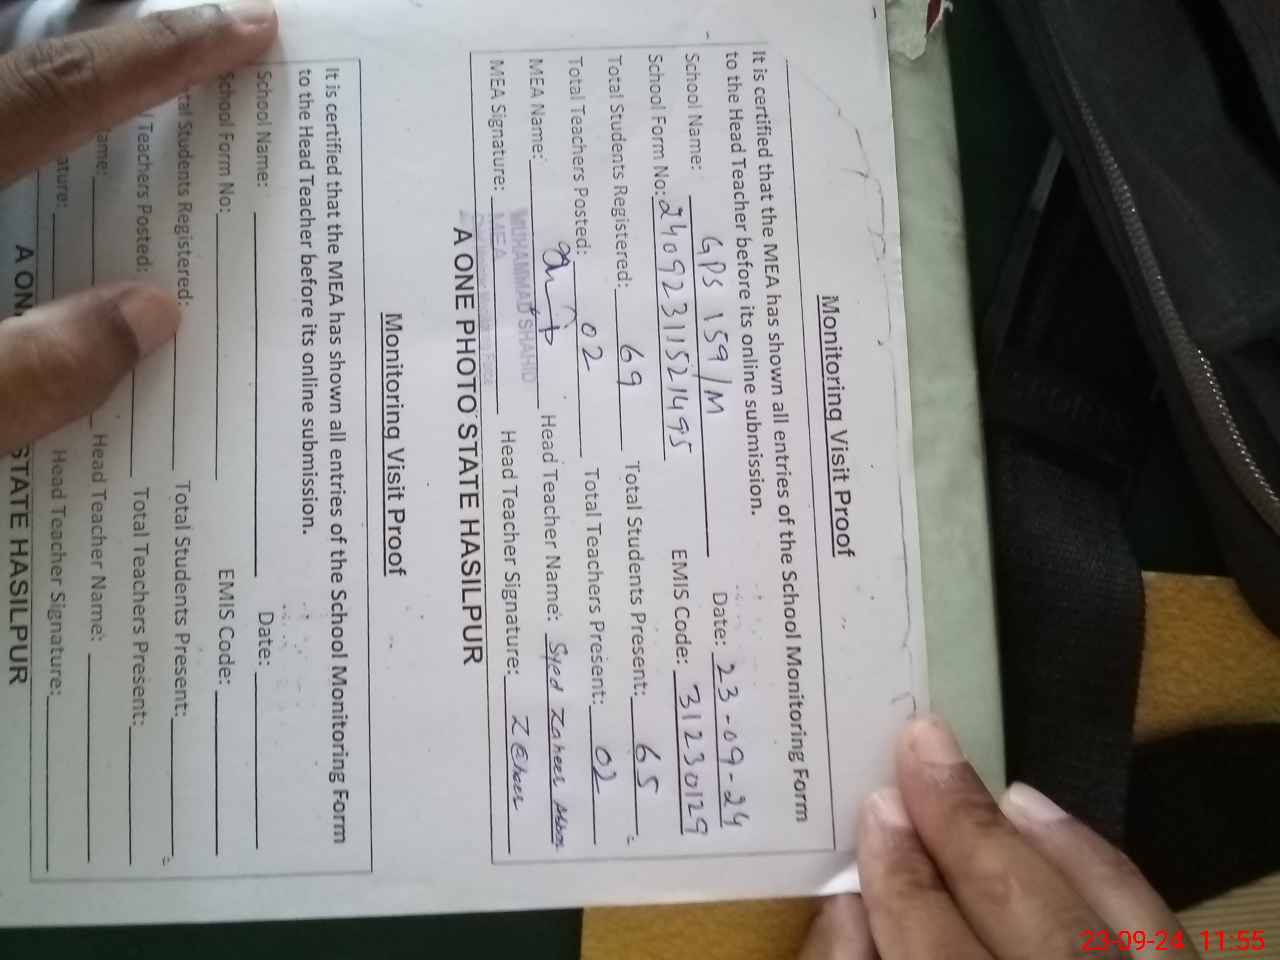 Monitoring Visit Proof
It is certified that the MEA has shown all entries of the School Monitoring Form
to the Head Teacher before its online submission.
School Name: GPS 159/M Date: 23-09-24
School Form No: 24092311521495 EMIS Code: 31230129
Total Students Registered: 69 Total Students Present: 65
Total Teachers Posted: 02 Total Teachers Present: 02
MEA Name: MUHAMMAD SHAHID Head Teacher Name: Syed Zaheer
MEA Signature: MEA Head Teacher Signature: Zaheer
A ONE PHOTO STATE HASILPUR
Monitoring Visit Proof
It is certified that the MEA has shown all entries of the School Monitoring Form
to the Head Teacher before its online submission.
School Name: Date:
School Form No: EMIS Code:
Students Registered: Total Students Present:
Teachers Posted: Total Teachers Present:
Head Teacher Name:
Head Teacher Signature:
A ON STATE HASILPUR
23-09-24 11:55